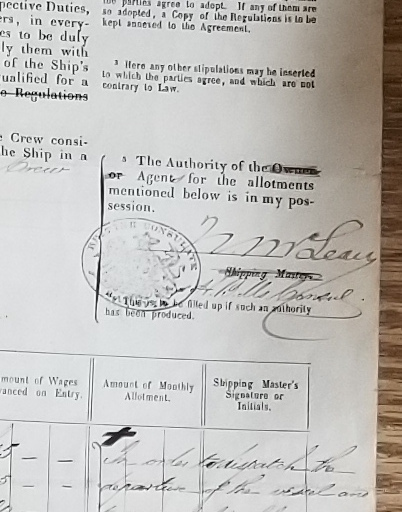 pective Duties,
rs, in every-
es to be duly
ly them with
of the Ship's
ualified for a
e Regulations
the parties agree to adopt. If any of them are
so adopted, a Copy of the Regulations is to be
kept annexed to the Agreement.
³ Here any other stipulations may be inserted
to which the parties agree, and which are not
contrary to Law.
e Crew consi-
he Ship in a
Crew
⁵ The Authority of the Owner
or Agent for the allotments
mentioned below is in my pos-
session.
CONSULATE
McLean
Shipping Master.
Consul.
This is to be filled up if such an authority
has been produced.
mount of Wages
vanced on Entry.
Amount of Monthly
Allotment.
Shipping Master's
Signature or
Initials.
5 – –
In order to despatch the
– –
departure of the vessel and